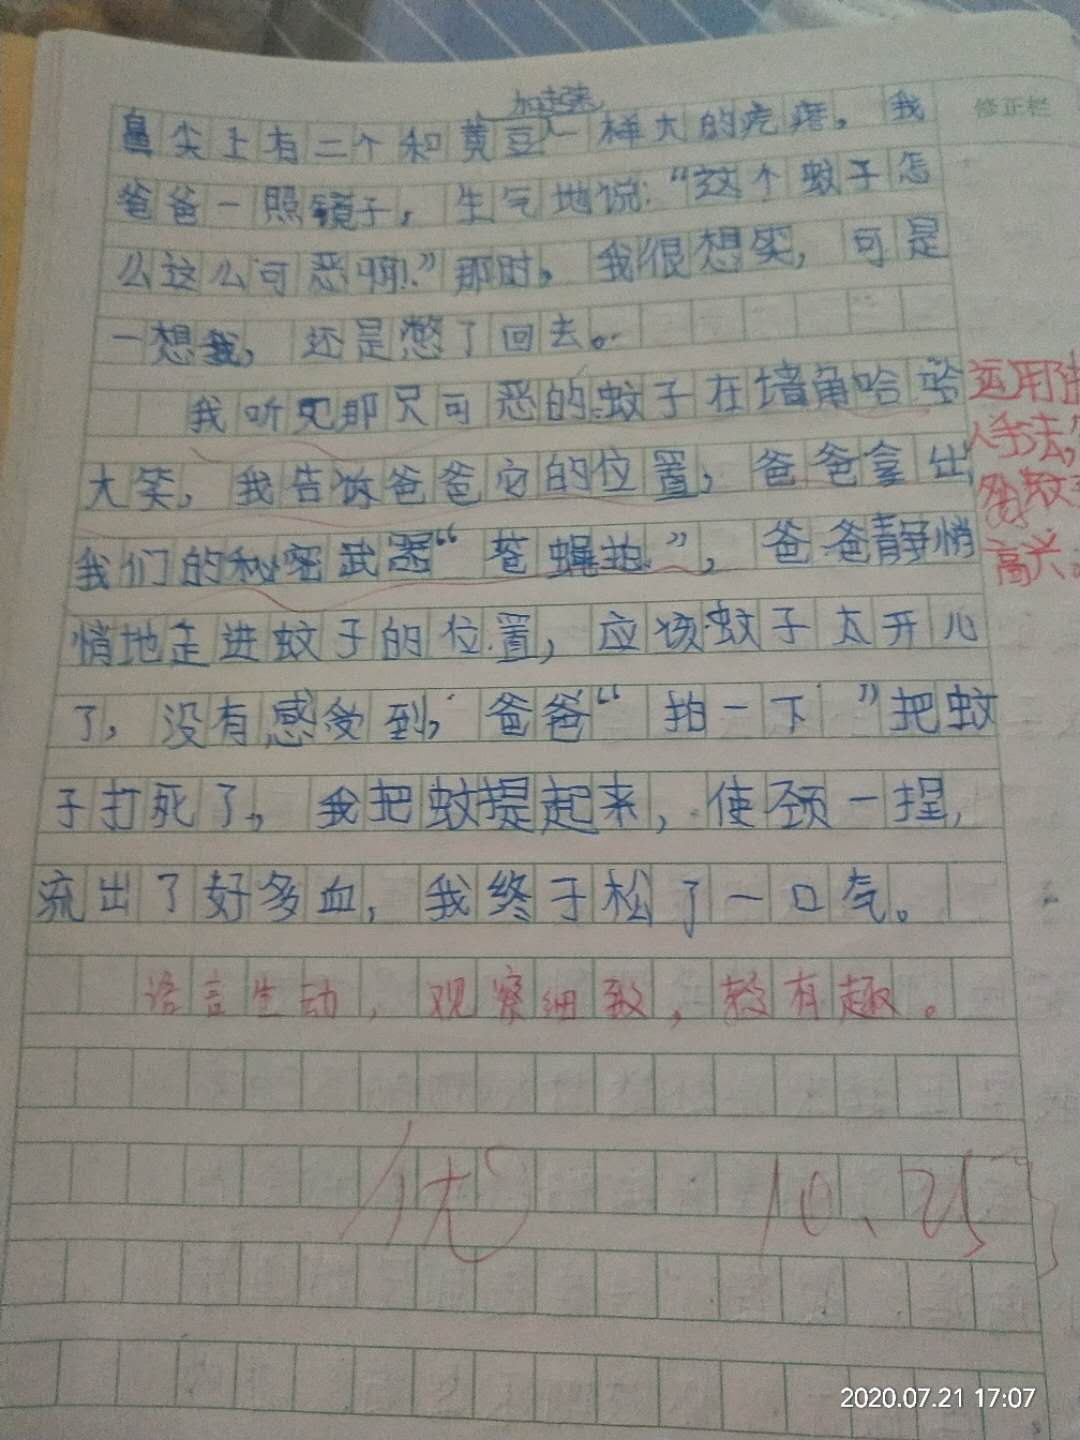 加起来
鼻尖上有二个和黄豆一样大的疙瘩，我
修正栏
爸爸一照镜子，生气地说：“这个蚊子怎
么这么可恶啊！”那时，我很想笑，可是
一想我，还是憋了回去。
我听见那只可恶的蚊子在墙角哈哈
运用
大笑，我告诉爸爸它的位置，爸爸拿出
人手法，
我们的秘密武器“苍蝇拍”，爸爸静悄
高兴。
悄地走进蚊子的位置，应该蚊子太开心
了，没有感受到，爸爸“拍一下”把蚊
子打死了，我把蚊提起来，使颈一捏，
流出了好多血，我终于松了一口气。
语言生动，观察细致，较有趣。
优 10、25
2020.07.21 17:07